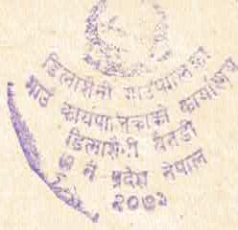 डिलासैनी गाउँपालिका
गाउँ कार्यपालिकाको कार्यालय
डिलासैनी बैतडी
७ नं प्रदेश नेपाल
२०७३